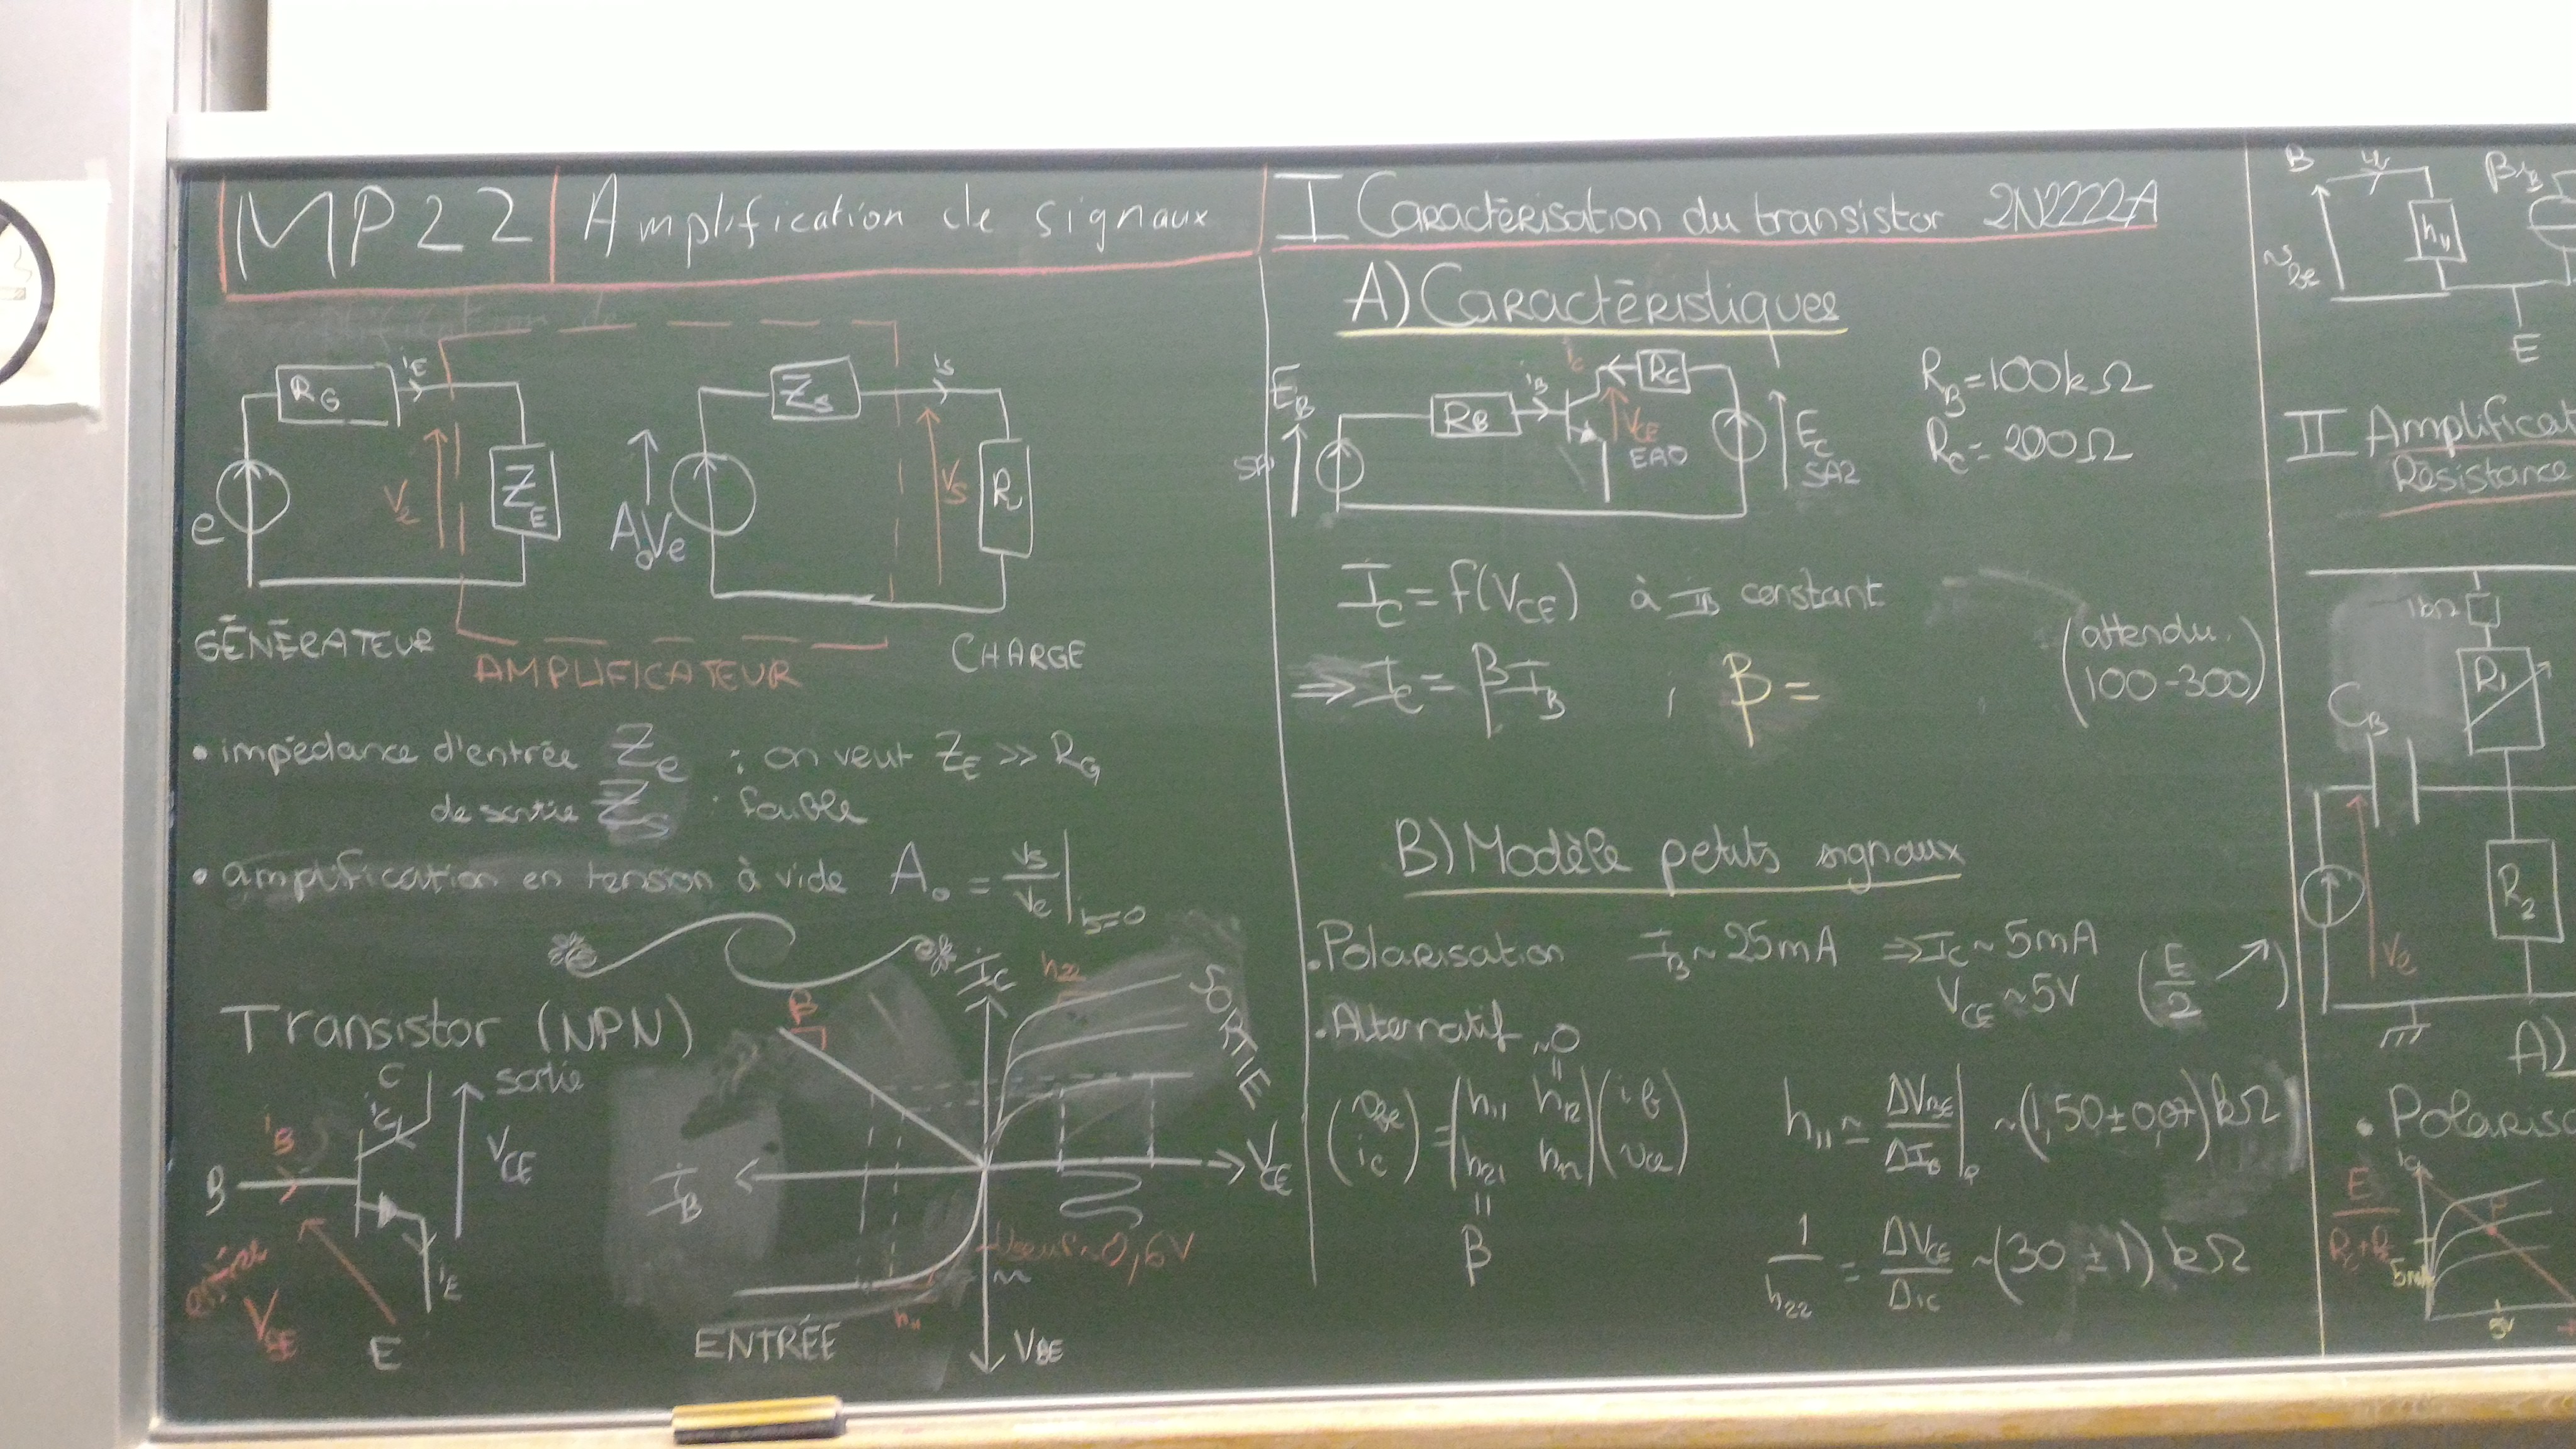 MP22 Amplification de signaux
R_G
i_E
Z_S
i_S
e
V_e
Z_E
A_0 V_e
V_S
R
GÉNÉRATEUR
AMPLIFICATEUR
CHARGE
• impédance d'entrée Z_e : on veut Z_E >> R_G
de sortie Z_S : faible
• amplification en tension à vide A_0 = v_s/v_e |_{i_s=0}
Transistor (NPN)
C
sortie
i_C
i_B
B
V_CE
i_E
entrée
V_BE
E
β
I_C
h_22
SORTIE
V_CE
I_B
V_seuil ~0,6V
h_11
ENTRÉE
V_BE
I Caractérisation du transistor 2N2222A
A) Caractéristiques
E_B
R_B
i_B
i_C
R_C
V_CE
EA0
E_C
SA2
R_B = 100kΩ
R_C = 200Ω
I_C = f(V_CE) à I_B constant
⇒ I_C = β I_B ; β =
(attendu : 100-300)
B) Modèle petits signaux
• Polarisation I_B ~ 25mA ⇒ I_C ~ 5mA
V_CE ~ 5V (E/2 ↗)
• Alternatif
~0
(v_be i_c) = (h_11 h_12 h_21 h_22) (i_b v_ce)
β
h_11 ≃ ΔV_BE/ΔI_B | ~(1,50±0,07)kΩ
1/h_22 = ΔV_CE/Δi_C ~(30±1)kΩ
B
h_11
β i_B
v_be
E
II Amplificat
Résistance
1kΩ
R_1
C_B
R_2
V_e
A)
• Polaris
i_C
E
R_C+R_E
P
5mA
5V